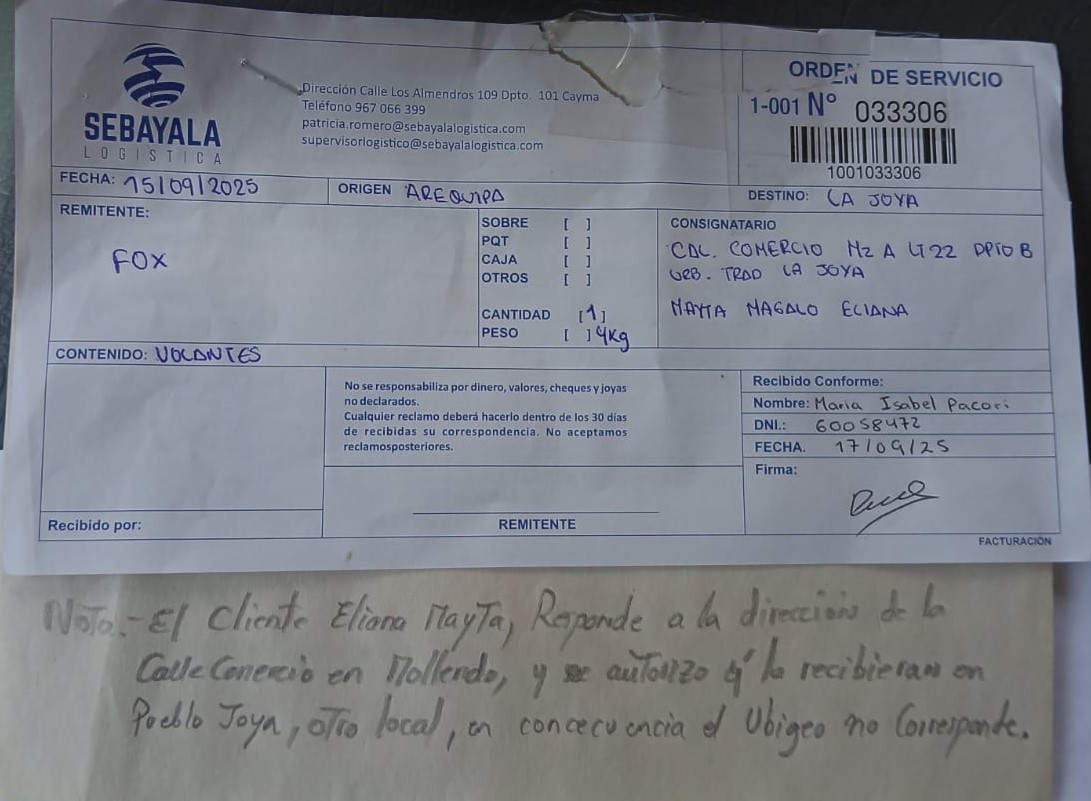 SEBAYALA
LOGISTICA
Dirección Calle Los Almendros 109 Dpto. 101 Cayma
Teléfono 967 066 399
patricia.romero@sebayalalogistica.com
supervisorlogistico@sebayalalogistica.com
ORDEN DE SERVICIO
1-001 N° 033306
1001033306
FECHA: 15/09/2025
ORIGEN AREQUIPA
DESTINO: LA JOYA
REMITENTE:
FOX
SOBRE [ ]
PQT [ ]
CAJA [ ]
OTROS [ ]
CANTIDAD [1]
PESO [ ] 4kg
CONSIGNATARIO
CAL. COMERCIO MZ A LT 22 DPTO B
URB. TRAD LA JOYA
MAYTA MAGALO ELIANA
CONTENIDO: VOLANTES
No se responsabiliza por dinero, valores, cheques y joyas
no declarados.
Cualquier reclamo deberá hacerlo dentro de los 30 días
de recibidas su correspondencia. No aceptamos
reclamosposteriores.
Recibido Conforme:
Nombre: Maria Isabel Pacori
DNI.: 60058472
FECHA. 17/09/25
Firma:
Recibido por:
REMITENTE
FACTURACIÓN
Nota.- El Cliente Eliana Mayta, Responde a la direccion de la
Calle Comercio en Mollendo, y se autorizo q' lo recibieran en
Pueblo Joya, otro local, en concecuencia el Ubigeo no Corresponde.